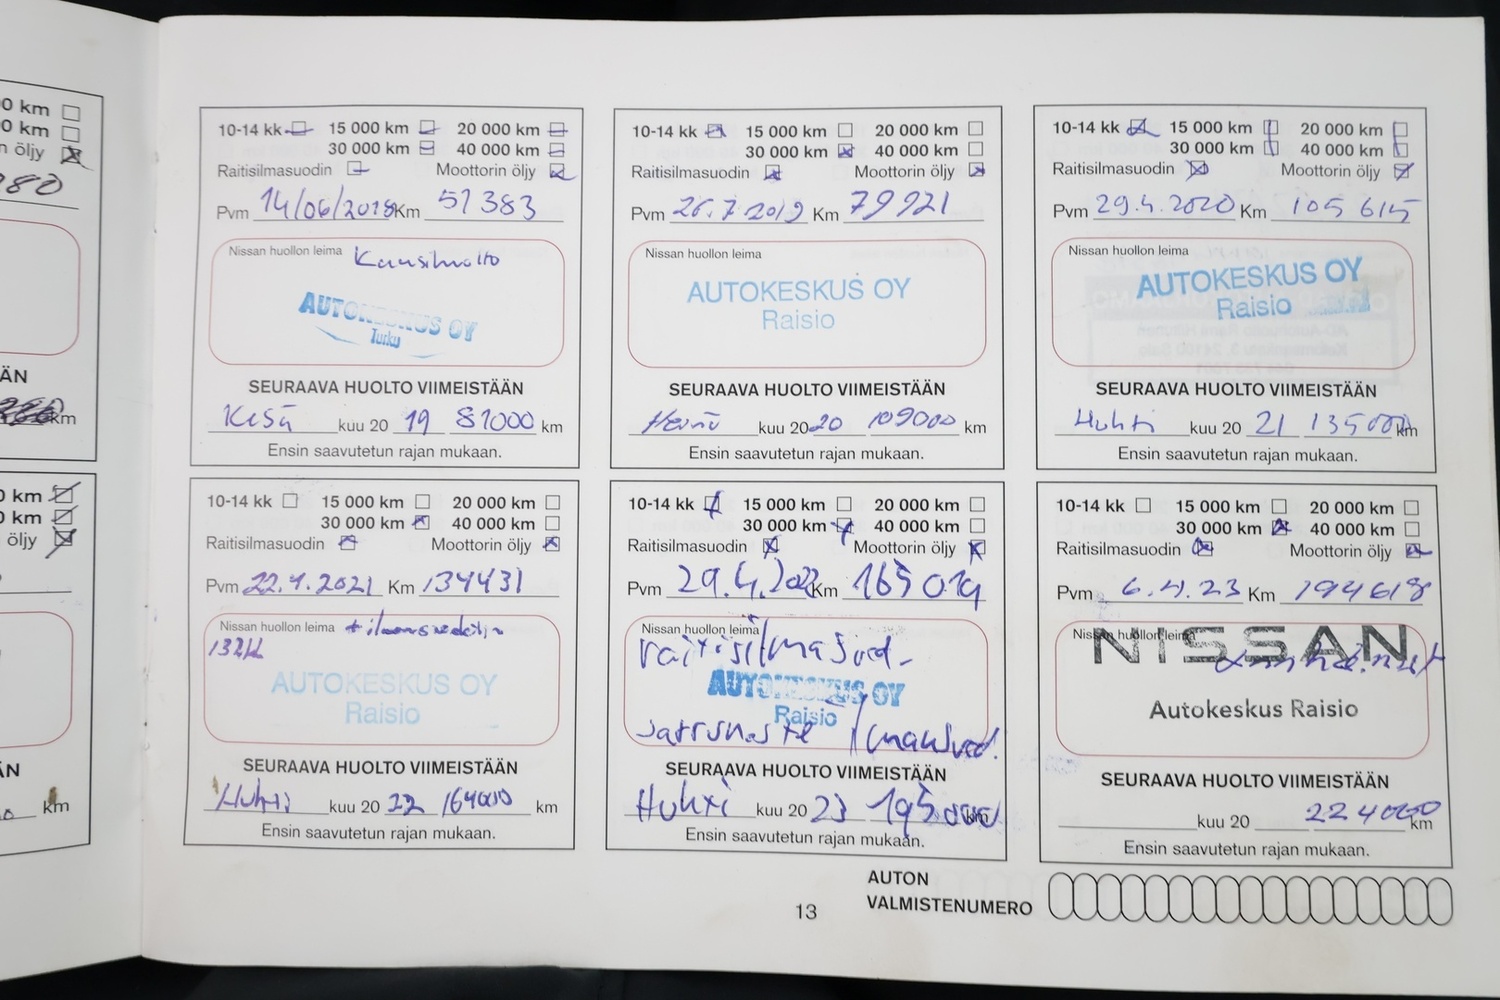 0 km
0 km
n öljy
980
ÄN
km
0 km
0 km
öljy
ÄN
km
10-14 kk 15 000 km 20 000 km
30 000 km 40 000 km
Raitisilmasuodin Moottorin öljy
Pvm 14/06/2018 Km 51383
Nissan huollon leima
AUTOKESKUS OY
Turku
SEURAAVA HUOLTO VIIMEISTÄÄN
Kesä kuu 20 19 81000 km
Ensin saavutetun rajan mukaan.
10-14 kk 15 000 km 20 000 km
30 000 km 40 000 km
Raitisilmasuodin Moottorin öljy
Pvm 26.7.2019 Km 79921
Nissan huollon leima
AUTOKESKUS OY
Raisio
SEURAAVA HUOLTO VIIMEISTÄÄN
Heinä kuu 20 20 109000 km
Ensin saavutetun rajan mukaan.
10-14 kk 15 000 km 20 000 km
30 000 km 40 000 km
Raitisilmasuodin Moottorin öljy
Pvm 29.4.2020 Km 105 615
Nissan huollon leima
AUTOKESKUS OY
Raisio
SEURAAVA HUOLTO VIIMEISTÄÄN
Huhti kuu 20 21 135000 km
Ensin saavutetun rajan mukaan.
10-14 kk 15 000 km 20 000 km
30 000 km 40 000 km
Raitisilmasuodin Moottorin öljy
Pvm 22.4.2021 Km 134431
Nissan huollon leima + ilmansuodatin
AUTOKESKUS OY
Raisio
SEURAAVA HUOLTO VIIMEISTÄÄN
Huhti kuu 20 22 164000 km
Ensin saavutetun rajan mukaan.
10-14 kk 15 000 km 20 000 km
30 000 km 40 000 km
Raitisilmasuodin Moottorin öljy
Pvm 29.4.2022 Km 165019
Nissan huollon leima
raitisilmasuod.
AUTOKESKUS OY
Raisio
jarruneste ilmansuod.
SEURAAVA HUOLTO VIIMEISTÄÄN
Huhti kuu 20 23 195000 km
Ensin saavutetun rajan mukaan.
10-14 kk 15 000 km 20 000 km
30 000 km 40 000 km
Raitisilmasuodin Moottorin öljy
Pvm 6.4.23 Km 194618
Nissan huollon leima
NISSAN
Autokeskus Raisio
SEURAAVA HUOLTO VIIMEISTÄÄN
kuu 20 224000 km
Ensin saavutetun rajan mukaan.
AUTON
VALMISTENUMERO
13